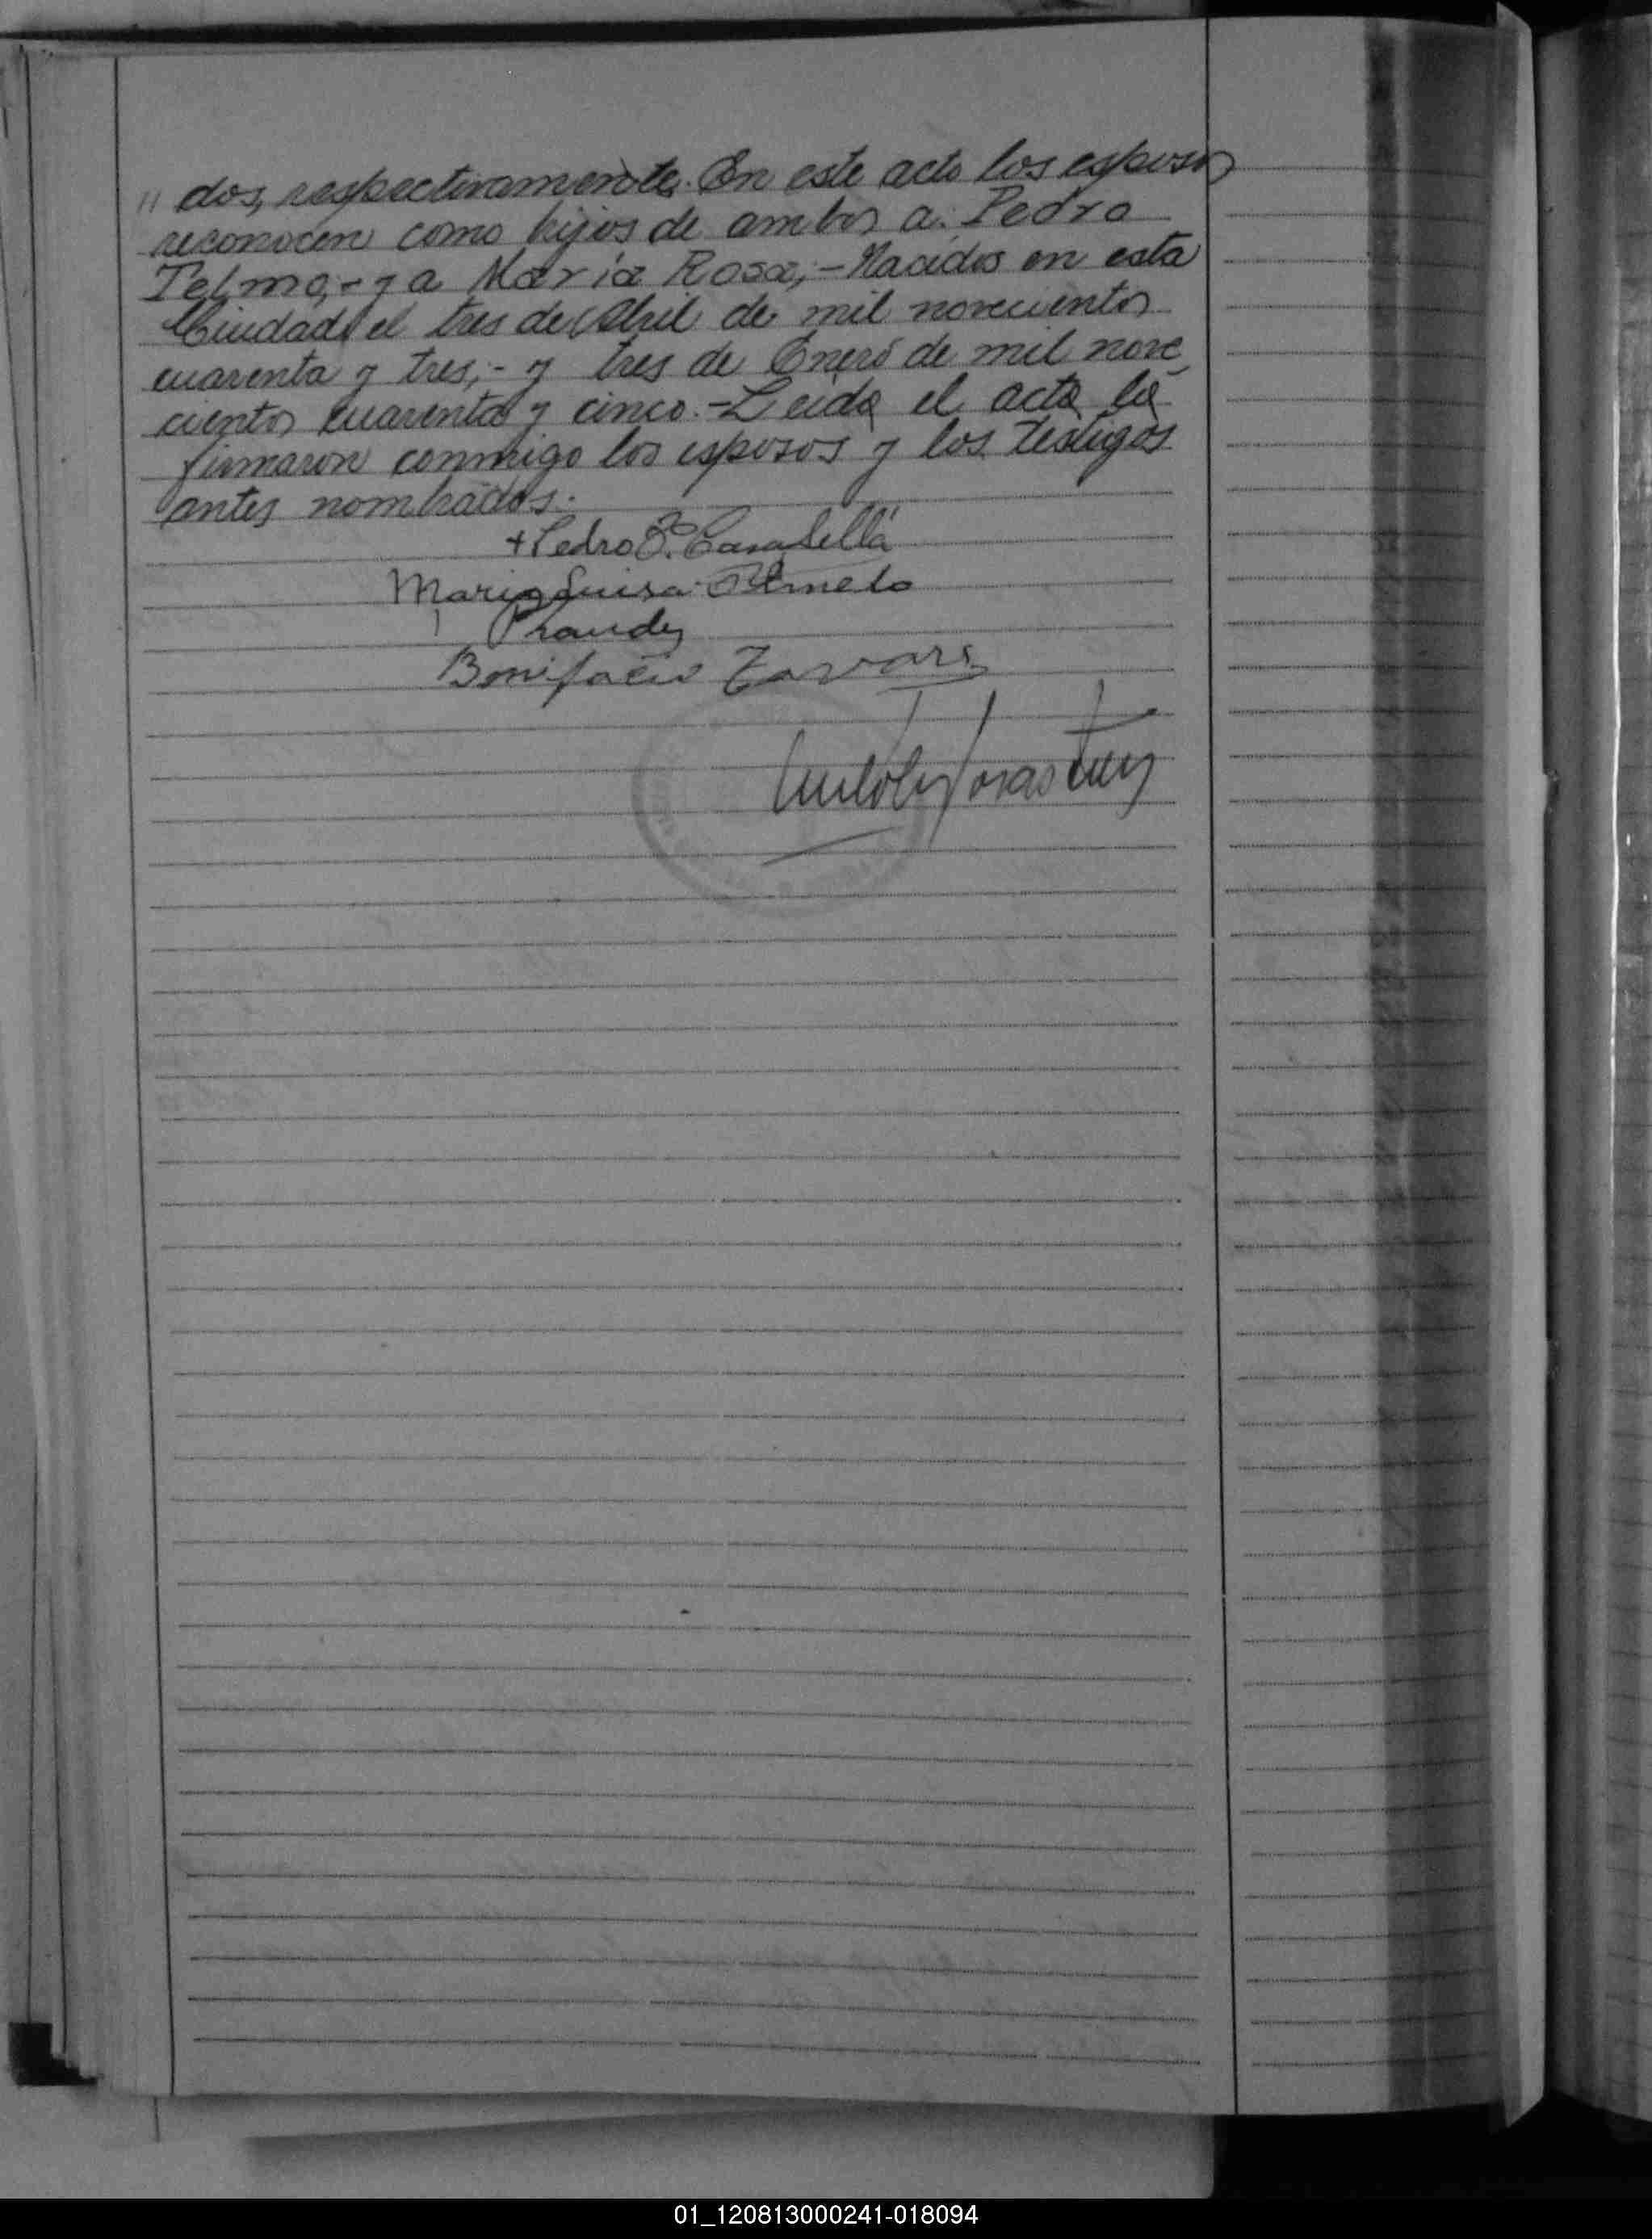 " dos, respectivamente. En este acto los esposos
reconocen como hijos de ambos a: Pedro
Telmo,- y a María Rosa;- Nacidos en esta
Ciudad el tres de Abril de mil novecientos
cuarenta y tres;- y tres de Enero de mil nove
cientos cuarenta y cinco.- Leida el acta la
firmaron conmigo los esposos y los testigos
antes nombrados.
+ Pedro
Maria Luisa
Bonifacio
01_120813000241-018094